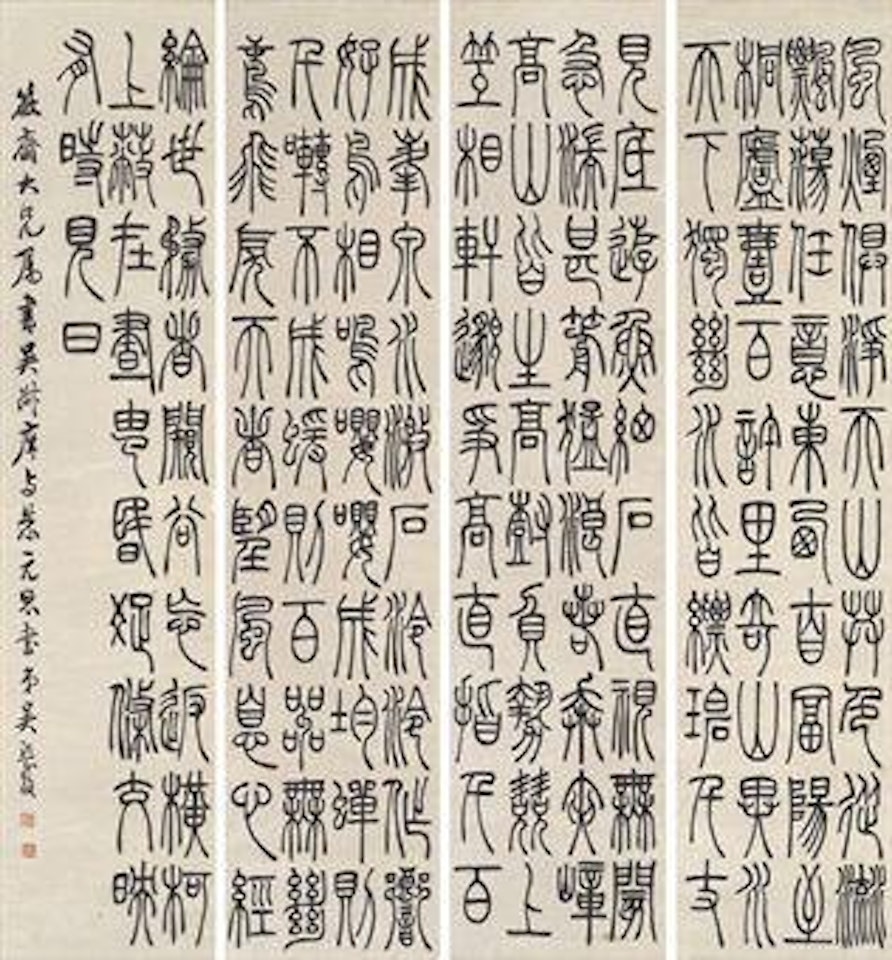 風煙俱淨天山共色從流
飄蕩任意東西自富陽至
桐廬壹百許里奇山異水
天下獨絕水皆縹碧千丈
見底游魚細石直視無
急湍甚箭猛浪若奔夾嶂
高山皆生高樹負勢競上
互相軒邈爭高直指千百
成峯泉水激石泠泠作響
好鳥相鳴嚶嚶成均蟬則
千囀不成猨則百嘂無絕
鳶飛戾天者望風息心經
綸世務者闚谷忘返橫柯
上蔽在晝猶昏疏條交映
有時見日
筱齋大兄屬書吳叔庠與朱元思書弟吳